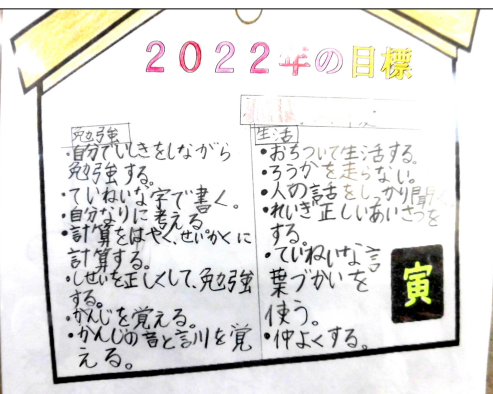 2022年の目標
勉強
・自分でいしきをしながら
勉強する。
・ていねいな字で書く。
・自分なりに考える。
・計算をはやく、せいかくに
計算する。
・しせいを正しくして、勉強
する。
・かんじを覚える。
・かんじの音と訓を覚
える。
生活
・おちついて生活する。
・ろうかを走らない。
・人の話をしっかり聞く。
・れいぎ正しいあいさつを
する。
・ていねいな言
葉づかいを
使う。
・仲よくする。
寅